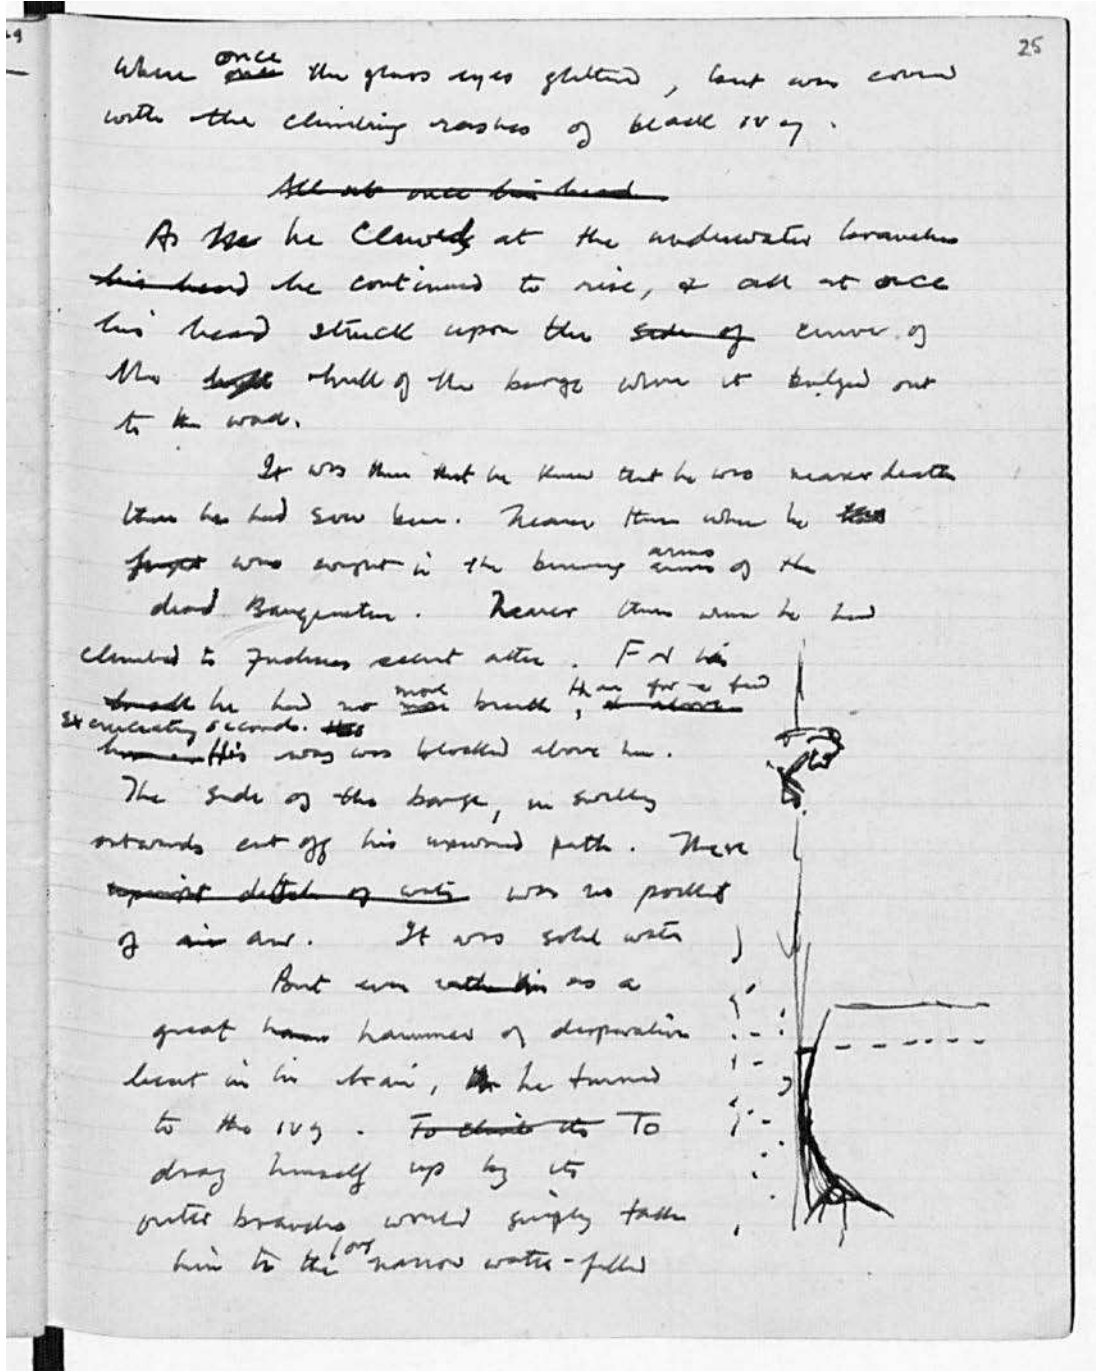 25
where once once the glass eyes glittered, but was covered
with the climbing rashes of black ivy.
All at once his head
As he clawed at the underwater branches
his head he continued to rise, & all at once
his head struck upon the side of curve of
the hull of the barge where it bulged out
to the wad.
It was then that he knew that he was nearer death
than he had ever been. Nearer than when he
was caught in the burning arms arms of the
dead Barquentine. Nearer than when he had
climbed to Fuchsia's secret attic. For his
breath he had no more more breath, than for a few
excruciating seconds.
His way was blocked above him.
The side of the barge, in swelling
outwards cut off his upward path. There
was no pocket
of air air. It was solid water
But even with his as a
great hammer of desperation
beat in his brain, he turned
to the ivy. To climb its To
drag himself up by its
outer branches would simply take
him to the long narrow water-filled